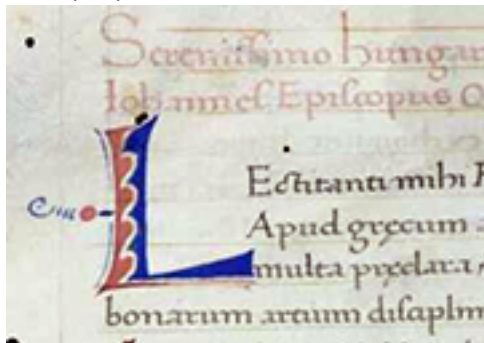 Serenissimo hungar
Iohannes Episcopus Q
LEctitanti mihi P
Apud gręcum a
multa pręclara,
bonarum artium disciplin